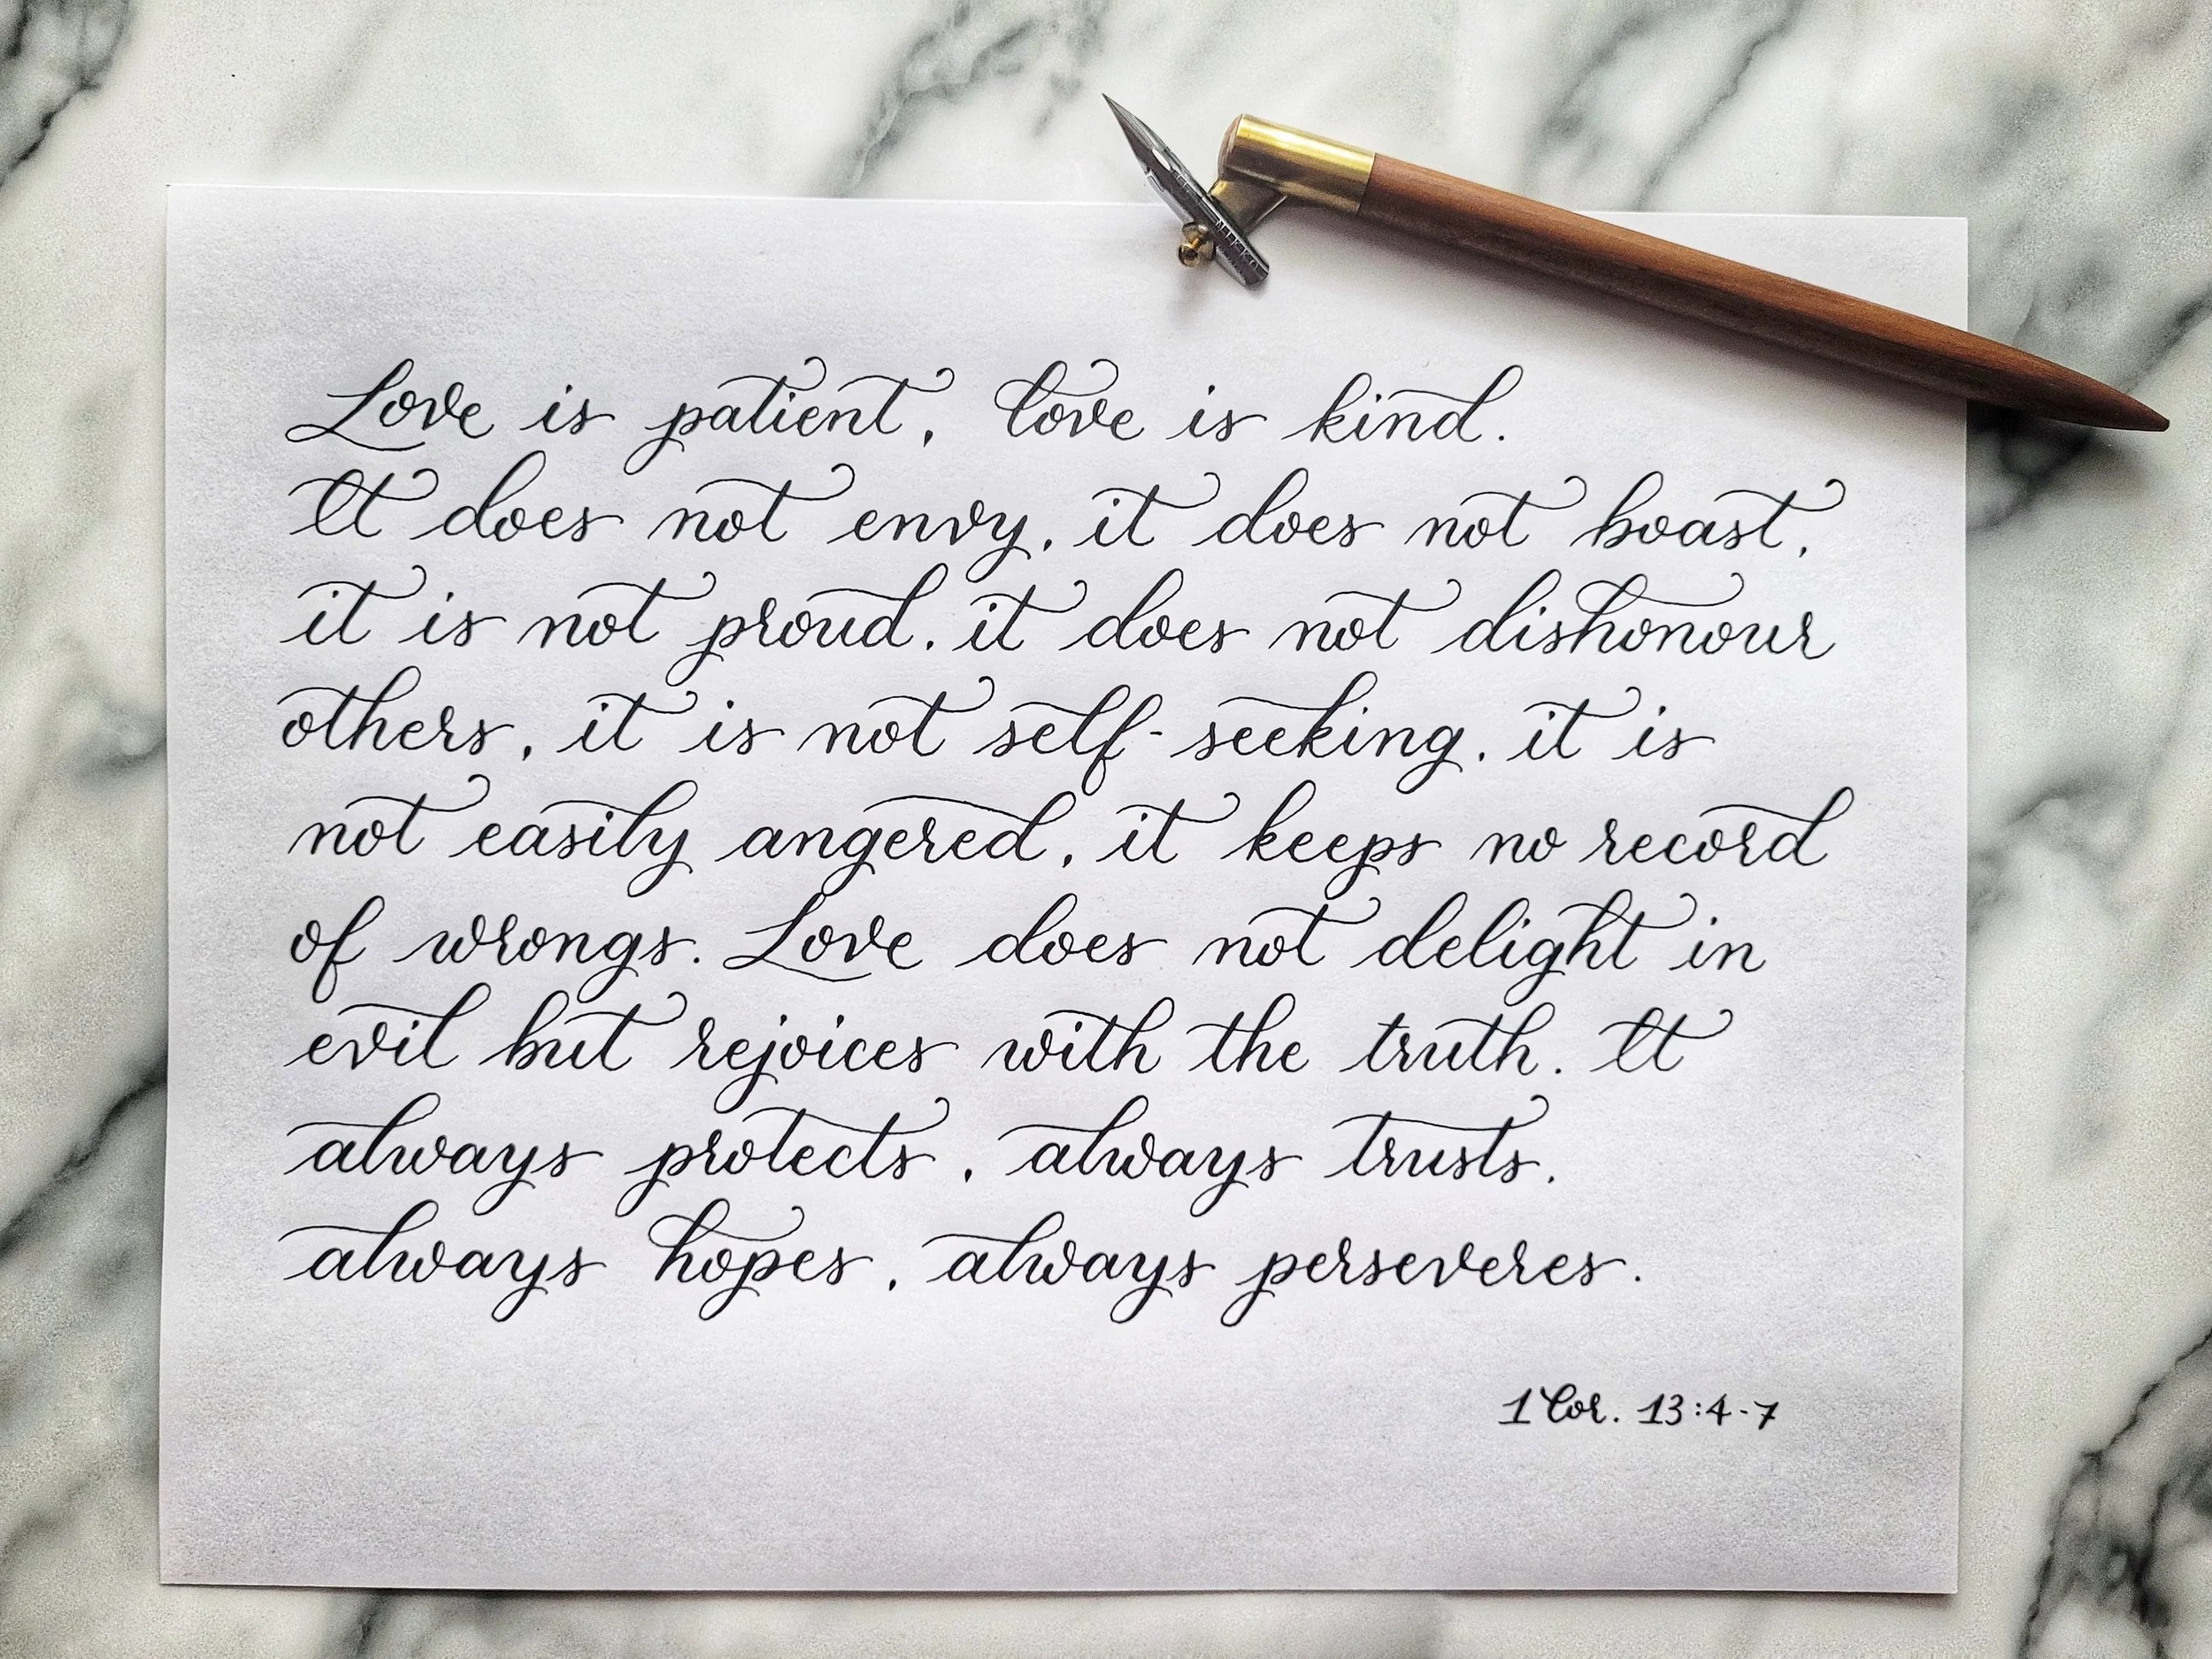 Love is patient, love is kind.
It does not envy, it does not boast,
it is not proud. it does not dishonour
others, it is not self-seeking, it is
not easily angered, it keeps no record
of wrongs. Love does not delight in
evil but rejoices with the truth. It
always protects, always trusts,
always hopes, always perseveres.
1 Cor. 13:4-7